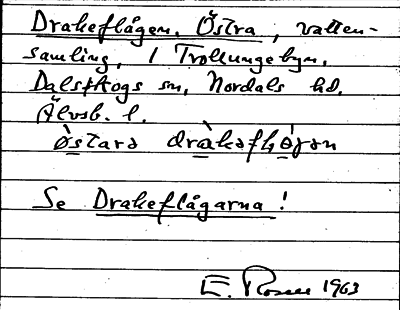 Drakeflågen, Östra, vatten-
samling, i Trollungebyn,
Dalskogs sn, Nordals hd.
Älvsb. l.
östara drakaflogan
Se Drakeflågarna!
E. Rosen 1963